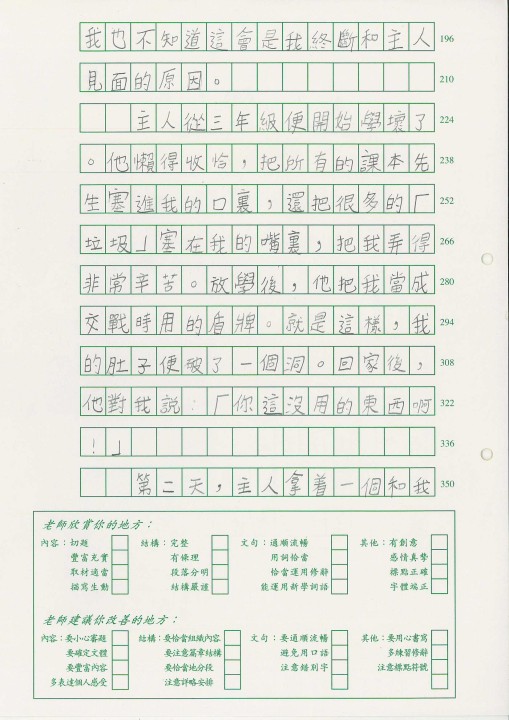 我也不知道這會是我終斷和主人 196
見面的原因。 210
主人從三年級便開始學壞了 224
。他懶得收恰，把所有的課本先 238
生塞進我的口裏，還把很多的「 252
垃圾」塞在我的嘴裏，把我弄得 266
非常辛苦。放學後，他把我當成 280
交戰時用的盾牌。就是這樣，我 294
的肚子便玻了一個洞。回家後， 308
他對我說：「你這沒用的東西啊 322
！」 336
第二天，主人拿着一個和我 350
老師欣賞你的地方：
內容：切題 結構：完整 文句：通順流暢 其他：有創意
豐富充實 有條理 用詞恰當 感情真摯
取材適當 段落分明 恰當運用修辭 標點正確
描寫生動 結構嚴謹 能運用新學詞語 字體端正
老師建議你改善的地方：
內容：要小心審題 結構：要恰當組織內容 文句：要通順流暢 其他：要用心書寫
要確定文體 要注意篇章結構 避免用口語 多練習修辭
要豐富內容 要恰當地分段 注意錯別字 注意標點符號
多表達個人感受 注意詳略安排